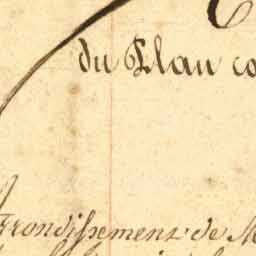 du Plan co
rrondissement de M